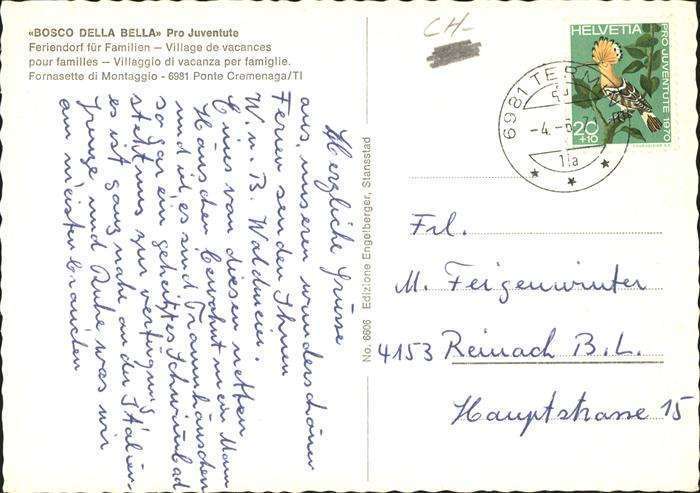 «BOSCO DELLA BELLA» Pro Juventute
Feriendorf für Familien — Village de vacances
pour familles — Villaggio di vacanza per famiglie.
Fornasette di Montaggio - 6981 Ponte Cremenaga/TI
CH-
HELVETIA
PRO JUVENTUTE 1970
20
+10
6981 TERM
-4.-6.7
11a
Herzliche Grüsse
aus unseren wunderschönen
Ferien senden Ihnen
W. u. B. Waldmeier.
Eines von diesen netten
Häuschen bewohnt mein Mann
und ich es sind Traumhäuschen
sogar ein geheiztes Schwimmbad
steht uns zur verfügung
es ist ganz nahe an der Italien-
grenze und Ruhe was wir
am meisten brauchen
No. 6606 Edizione Engelberger, Stansstad
Frl.
M. Feigenwinter
4153 Reinach B.L.
Hauptstrasse 15